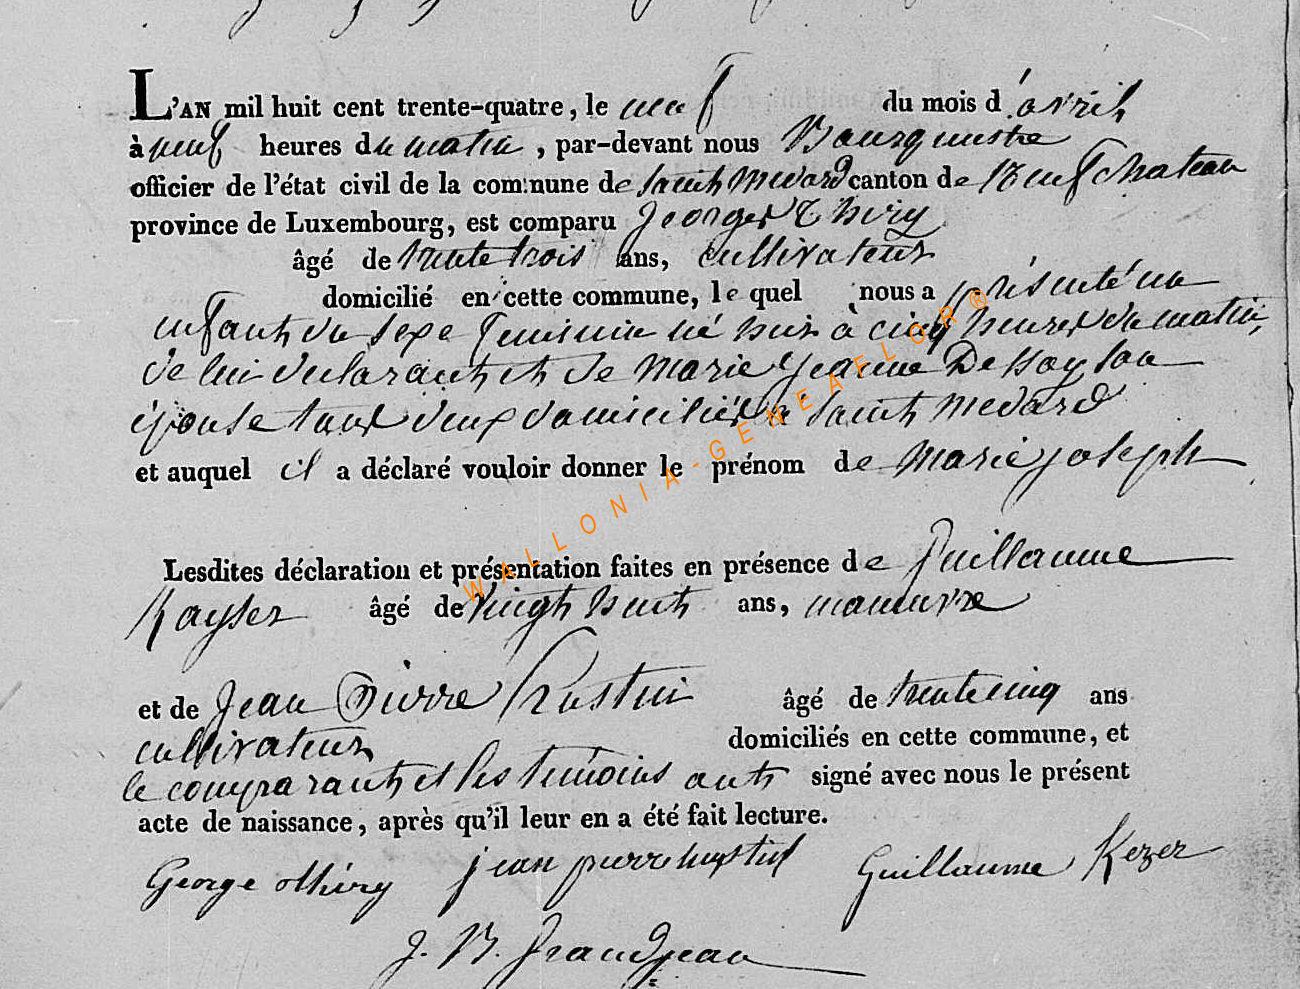 L'AN mil huit cent trente-quatre, le neuf du mois d'avril
à neuf heures du matin, par-devant nous Bourgmestre
officier de l'état civil de la commune de saint Medard canton de Neufchateau
province de Luxembourg, est comparu Georges Thiry
âgé de trente trois ans, cultivateur
domicilié en cette commune, le quel nous a présenté un
enfant du sexe feminin né hier à cinq heures du matin,
de lui declarant et de Marie Jeanne
épouse tous deux domiciliés à saint Medard
et auquel il a déclaré vouloir donner le prénom de Marie joseph
WALLONIA-GENEAFLOR®
Lesdites déclaration et présentation faites en présence de Guillaume
Kayser âgé de vingt huit ans, manœuvre
et de Jean Pierre Hustin âgé de trente cinq ans
cultivateur domiciliés en cette commune, et
le comparant et les témoins ont signé avec nous le présent
acte de naissance, après qu'il leur en a été fait lecture.
George thiry jean pierre hustin Guillaume Kezer
J. B. Grandjean